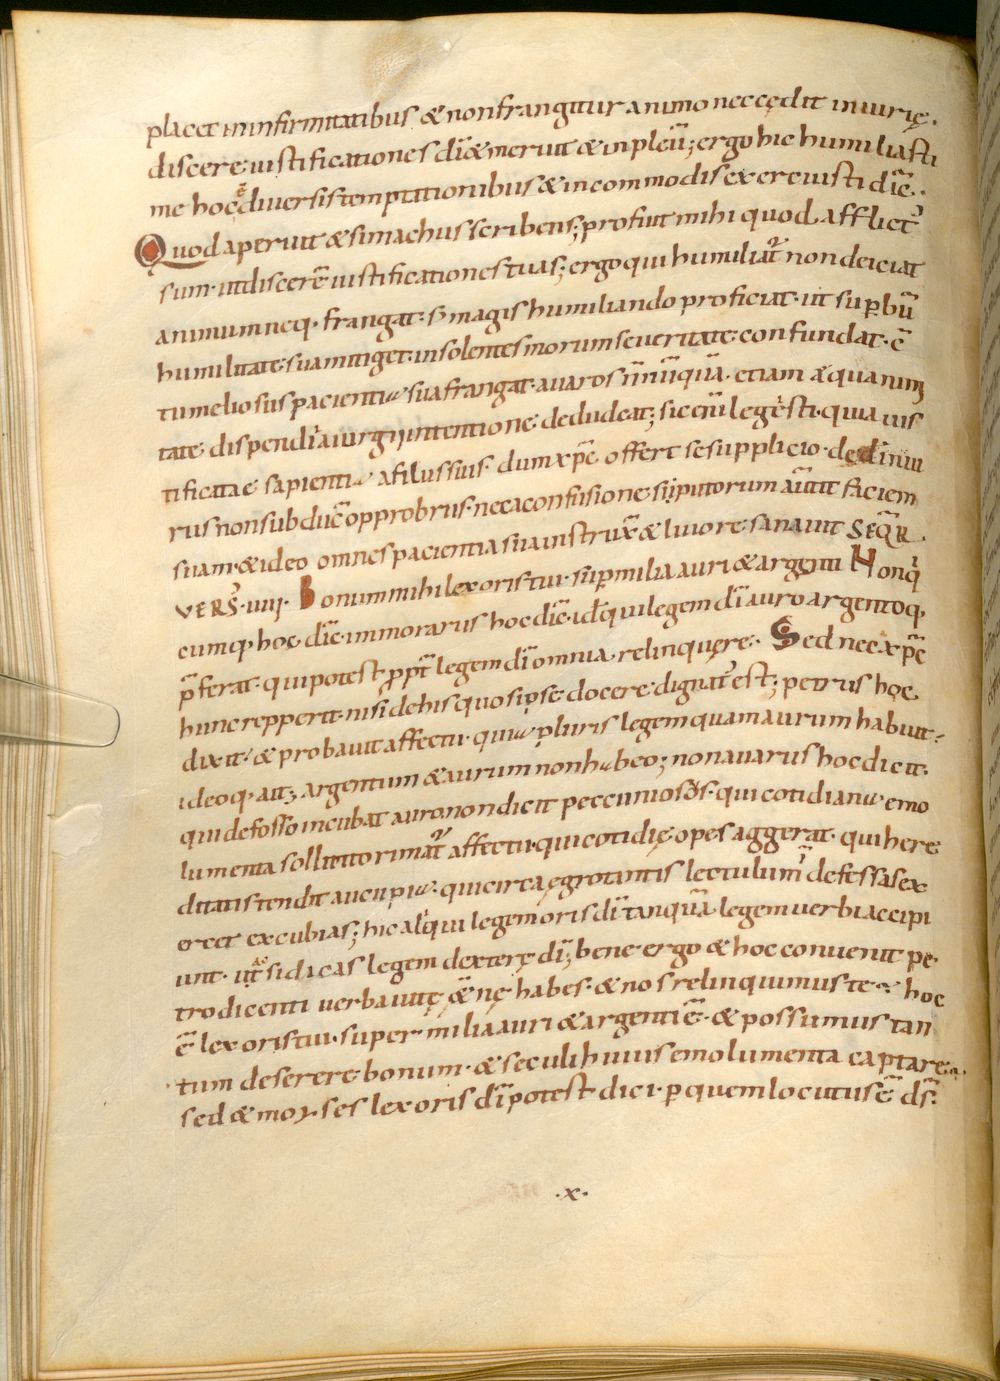 placet in infirmitatibus & non frangitur animo nec cędit iniurię.
discere iustificationes dī & meruit & inpleuī; ergo hic humiliasti
me hoc ē diuersis temptationibus & incommodis exercuisti dic̄.
Quod aperuit & simachus scribens; profuit mihi quod afflict'
sum. ut discerē iustificationes tuas; ergo qui humiliat̄ non deiciat
animum neq. frangat. s; magis humiliando proficiat. ut sup̄bū
humilitate sua mitiget. insolentes morum seueritate confundat. c̄
tumeliosus pacientia sua frangat. auaros nūquā. etiam aequanimi
tate dispendia iurgii intentione deducat; sic enī legisti. quia ius
tificatae sapientia a filiis suis. dum xp̄c offert se supplicio. dedi n iui
rus non subducc̄ opprobrus. nec a confusione sputorum auertit faciem
suam. & ideo omnes pacientia sua instrux̄ & liuore sanauit SEQR̄
VERS̄. uiiii. Bonum mihi lex oris tui. sup̄ milia auri & argenti Non q̄
cumq. hoc dic̄. immorarus hoc dic̄. id ē qui legem dī auro argentoq.
p̄ferat. qui potest p̄pt̄ legem dī omnia relinquęre. Sed nec xp̄c
hunc repperit. nisi de his quos ipse docere dignat̄ est; petrus hoc
dixit. & probauit affectu. quia pluris legem quam aurum habuit.
ideoq. ait; argentum & aurum non habeo; non auarus hoc dicit.
qui defosso incubat auro non dicit peccuniosus. qui cotidiana emo
lumenta sollicito rimat̄ affectu. qui cotidie opes aggerat. qui here
ditatis tendit aucupia. qui circa ęgrotantis lectulum defessas ex
ercet excubias; hic aliqui legem oris dī tanquā legem uerbi accipi
unt. ut si dicas legem dexterę dī; bene ergo & hoc conuenit pe
tro dicenti uerba uitę ęternę habes. & nos relinquimus te. hoc
ē lex oris tui. super milia auri & argenti ē. & possumus tan
tum deserere bonum. & seculi huius emolumenta captare.
sed & moyses lex oris dī potest dici. p̄ quem locutus ē ds̄.
.x.